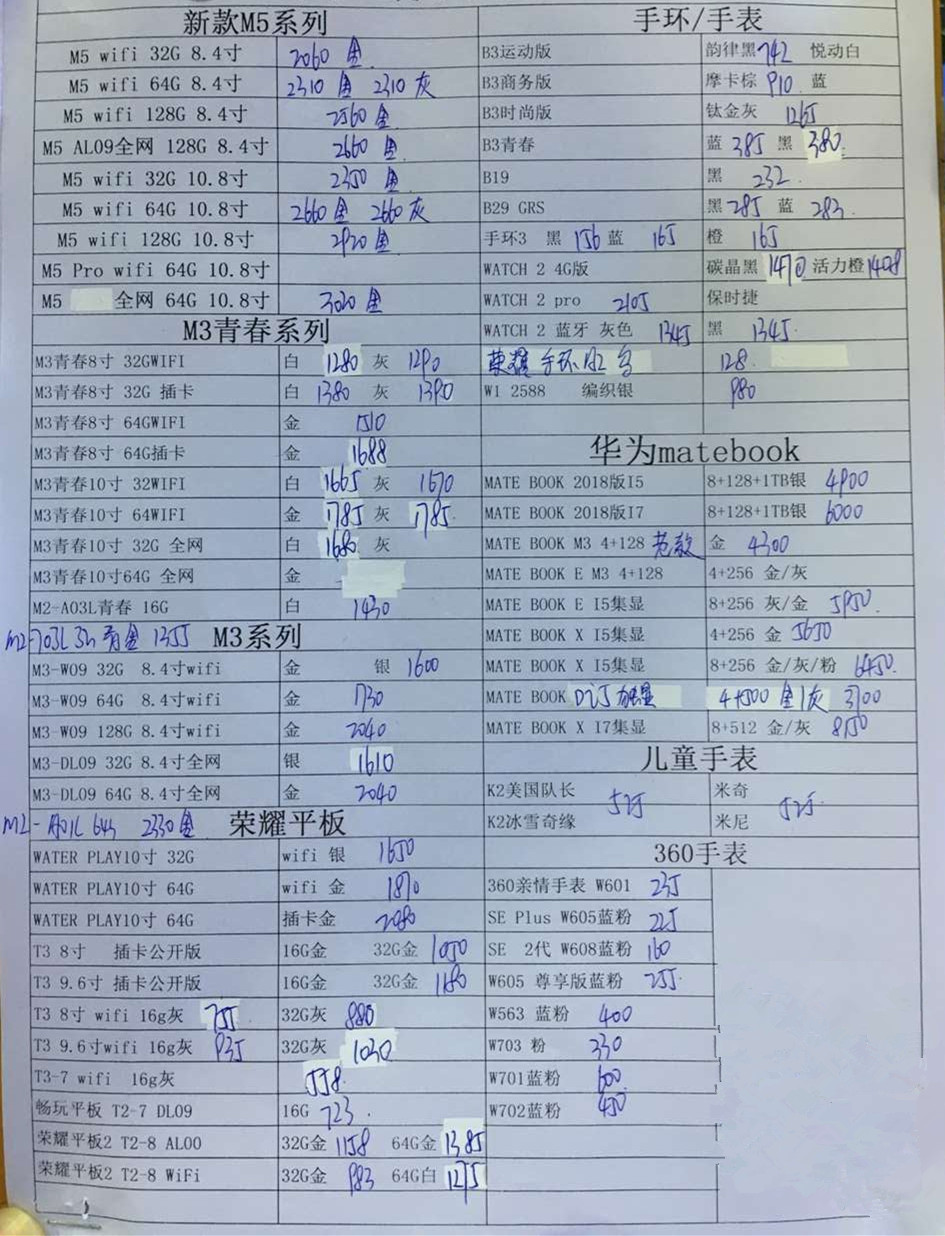 新款M5系列
M5 wifi 32G 8.4寸 2060 金
M5 wifi 64G 8.4寸 2310 金 2310 灰
M5 wifi 128G 8.4寸 2560 金
M5 AL09全网 128G 8.4寸 2660 金
M5 wifi 32G 10.8寸 2350 金
M5 wifi 64G 10.8寸 2660 金 2660 灰
M5 wifi 128G 10.8寸 2920 金
M5 Pro wifi 64G 10.8寸
M5 全网 64G 10.8寸 3020 金
M3青春系列
M3青春8寸 32GWIFI 白 1280 灰 1290
M3青春8寸 32G 插卡 白 1380 灰 1390
M3青春8寸 64GWIFI 金 1510
M3青春8寸 64G插卡 金 1688
M3青春10寸 32WIFI 白 1665 灰 1670
M3青春10寸 64WIFI 金 1785 灰 1785
M3青春10寸 32G 全网 白 1680 灰
M3青春10寸64G 全网 金
M2-A03L青春 16G 白 1430
M2-703L 金 1355 M3系列
M3-W09 32G 8.4寸wifi 金 银 1600
M3-W09 64G 8.4寸wifi 金 1730
M3-W09 128G 8.4寸wifi 金 2040
M3-DL09 32G 8.4寸全网 银 1610
M3-DL09 64G 8.4寸全网 金 2040
M2-A01L 64G 2330金 荣耀平板
WATER PLAY10寸 32G wifi 银 1650
WATER PLAY10寸 64G wifi 金 1870
WATER PLAY10寸 64G 插卡金 2080
T3 8寸 插卡公开版 16G金 32G金 1050
T3 9.6寸 插卡公开版 16G金 32G金 1180
T3 8寸 wifi 16g灰 755 32G灰 880
T3 9.6寸wifi 16g灰 935 32G灰 1030
T3-7 wifi 16g灰 558
畅玩平板 T2-7 DL09 16G 723
荣耀平板2 T2-8 AL00 32G金 1158 64G金 1385
荣耀平板2 T2-8 WiFi 32G金 983 64G白 1275
手环/手表
B3运动版 韵律黑742 悦动白
B3商务版 摩卡棕 910 蓝
B3时尚版 钛金灰 1265
B3青春 蓝 385 黑 380
B19 黑 232
B29 GRS 黑285 蓝 283
手环3 黑 156 蓝 165 橙 165
WATCH 2 4G版 碳晶黑 1470 活力橙1408
WATCH 2 pro 2105 保时捷
WATCH 2 蓝牙 灰色 1345 黑 1345
荣耀手环 128
W1 2588 编织银 980
华为matebook
MATE BOOK 2018版I5 8+128+1TB银 4900
MATE BOOK 2018版I7 8+128+1TB银 6000
MATE BOOK M3 4+128 金 4300
MATE BOOK E M3 4+128 4+256 金/灰
MATE BOOK E I5集显 8+256 灰/金 5950
MATE BOOK X I5集显 4+256 金 5650
MATE BOOK X I5集显 8+256 金/灰/粉 6450
MATE BOOK D i5 4+500 金/灰 3700
MATE BOOK X I7集显 8+512 金/灰 8150
儿童手表
K2美国队长 525 米奇 525
K2冰雪奇缘 米尼
360手表
360亲情手表 W601 235
SE Plus W605蓝粉 225
SE 2代 W608蓝粉 160
W605 尊享版蓝粉 255
W563 蓝粉 400
W703 粉 330
W701蓝粉 600
W702蓝粉 450